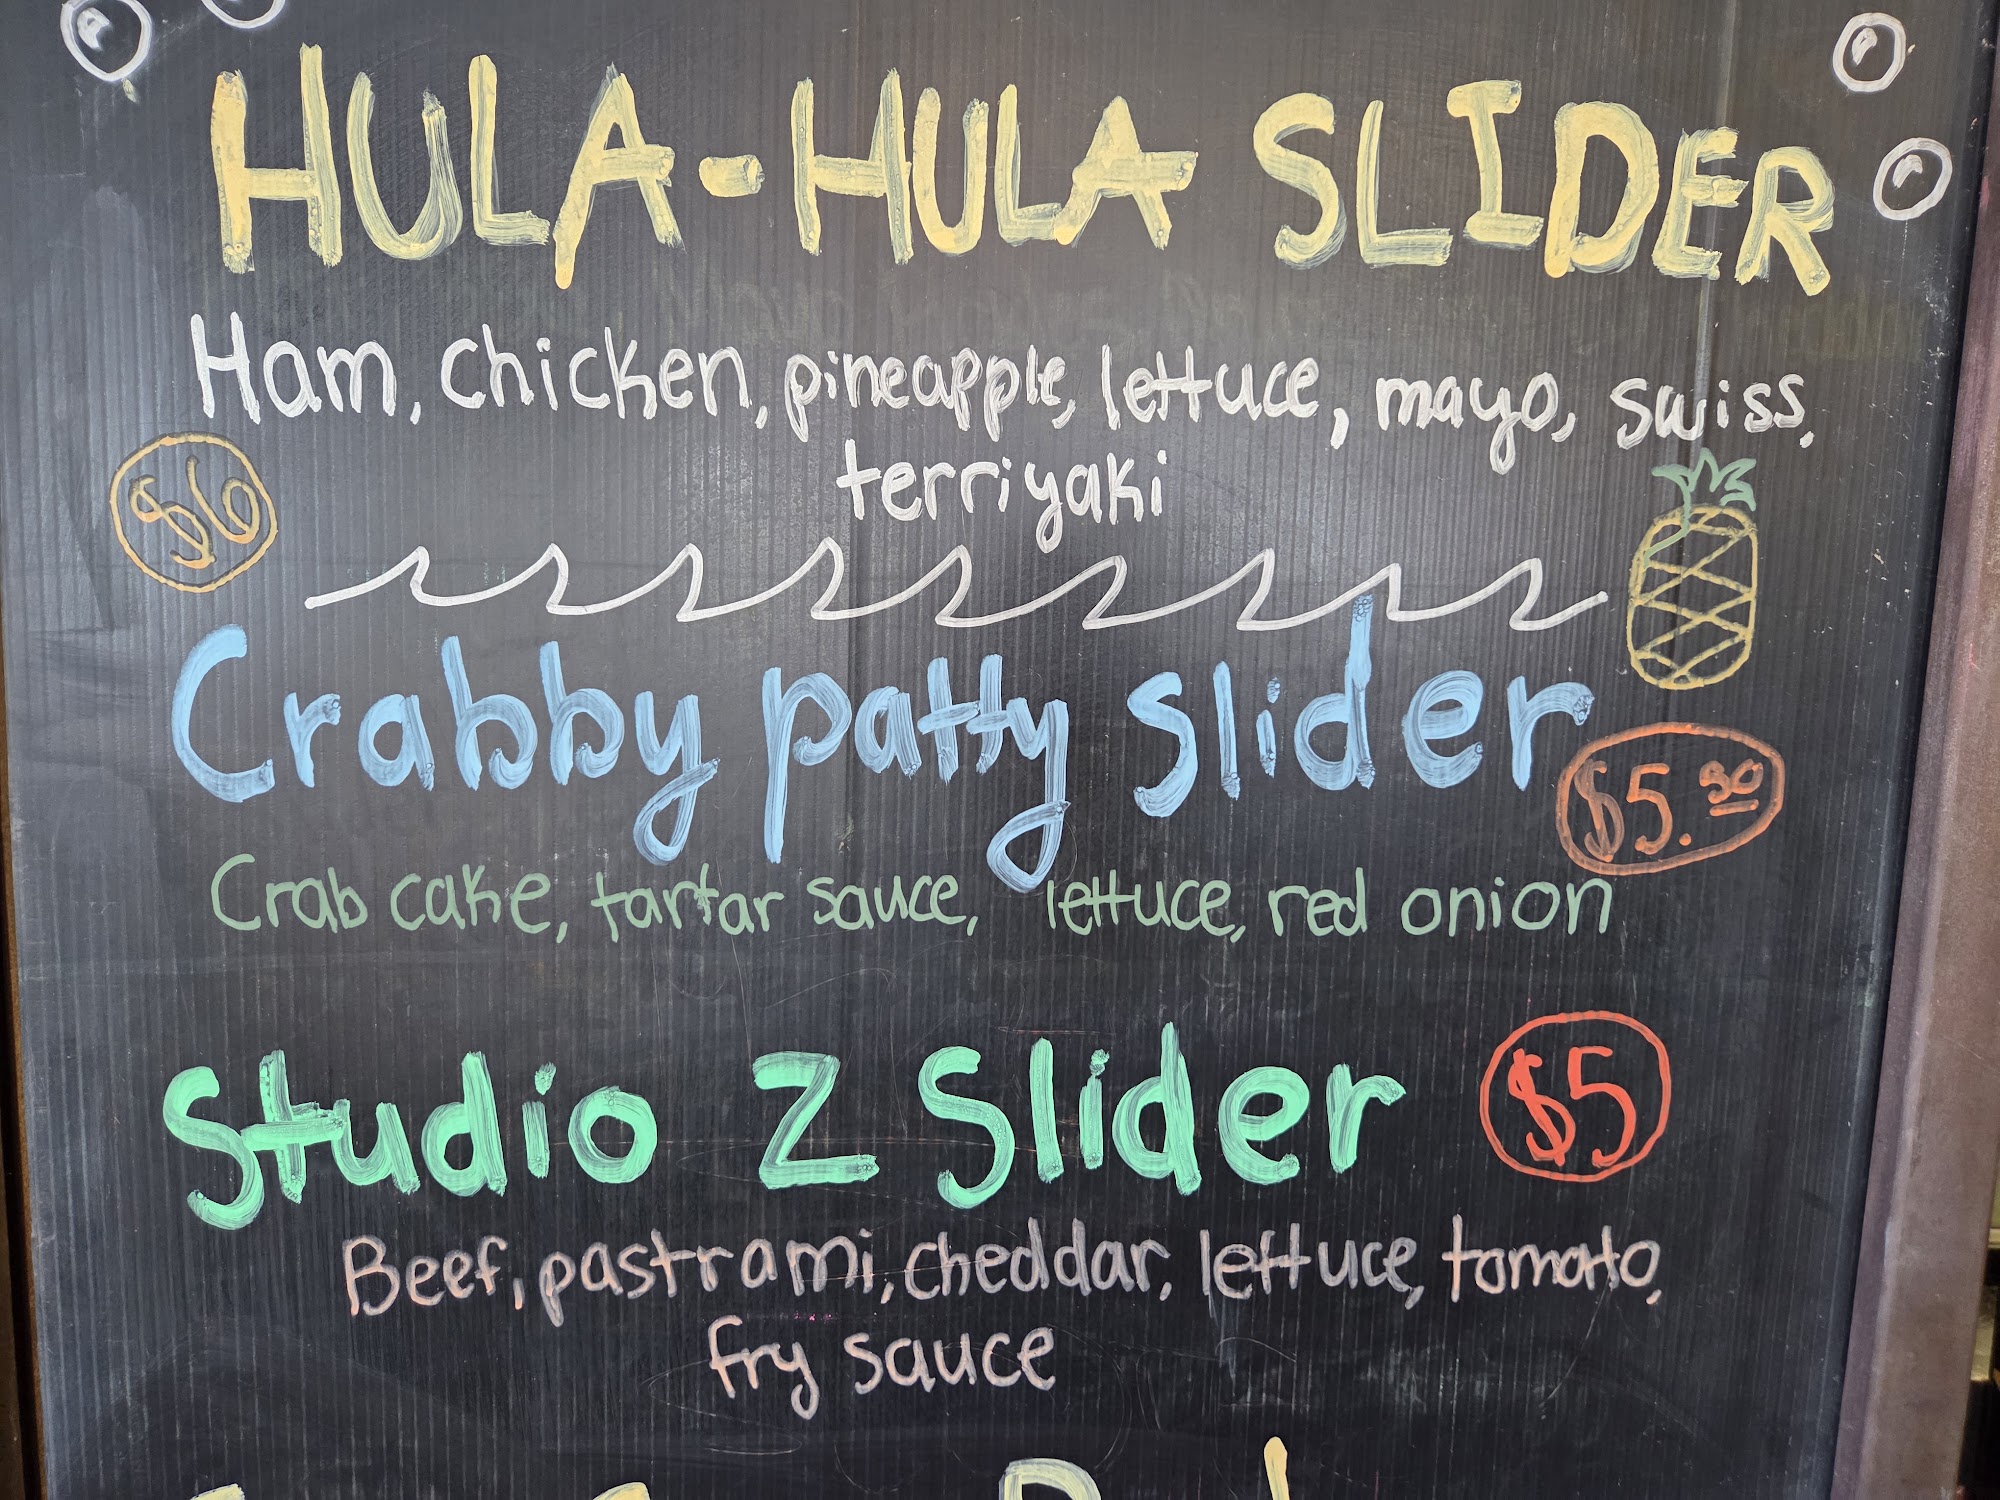 HULA-HULA SLIDER
Ham, chicken, pineapple, lettuce, mayo, swiss,
terriyaki
$6
Crabby patty slider
$5.50
Crab cake, tartar sauce, lettuce, red onion
Studio Z Slider
$5
Beef, pastrami, cheddar, lettuce, tomato,
fry sauce